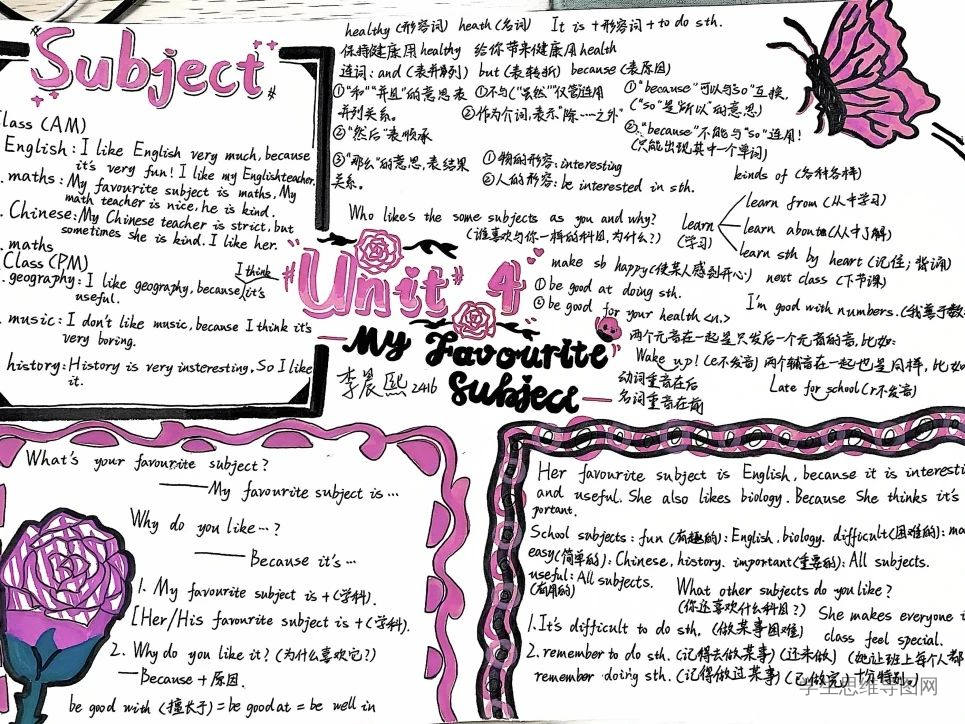 Subject
Class (AM)
English: I like English very much, because
it's very fun! I like my Englishteacher.
maths: My favourite subject is maths, My
math teacher is nice, he is kind.
Chinese: My Chinese teacher is strict, but
sometimes she is kind. I like her.
maths
Class (PM)
I think
geography: I like geography, because it's
useful.
music: I don't like music, because I think it's
very boring.
history: History is very insteresting, So I like
it.
healthy (形容词) heath (名词) It is + 形容词 + to do sth.
保持健康用healthy 给你带来健康用health
连词: and (表并列) but (表转折) because (表原因)
①“和”“并且”的意思表
并列关系。
②“然后”表顺承
③“那么”的意思, 表结果
关系。
①不与(“虽然”)
②作为介词, 表示“除……之外”
①“because”可以与“so”互换,
(“so”是“所以”的意思)
②“because”不能与“so”连用!
(只能出现其中一个单词)
①物的形容: interesting
②人的形容: be interested in sth.
kinds of (各种各样)
Who likes the some subjects as you and why?
(谁喜欢与你一样的科目, 为什么?)
learn
(学习)
learn from (从中学习)
learn about (从中了解)
learn sth by heart (记住; 背诵)
make sb happy (使某人感到开心) next class (下节课)
①be good at doing sth.
②be good for your health <n.>
I'm good with numbers.
两个元音在一起是只发后一个元音的音, 比如:
Wake up! (e不发音) 两个辅音在一起也是同样, 比如
动词重音在后
名词重音在前
Late for school (r不发音)
Unit 4
My Favourite
Subject
李晨熙 2416
What's your favourite subject?
——My favourite subject is…
Why do you like…?
——Because it's…
1. My favourite subject is + (学科).
[Her/His favourite subject is + (学科).
2. Why do you like it? (为什么喜欢它?)
—Because + 原因.
be good with (擅长于) = be good at = be well in
Her favourite subject is English, because it is interesti
and useful. She also likes biology. Because She thinks it's
portant.
School subjects: fun (有趣的): English, biology. difficult (困难的): ma
easy (简单的): Chinese, history. important (重要的): All subjects.
useful: All subjects.
(有用的)
What other subjects do you like?
(你还喜欢什么科目?)
She makes everyone i
class feel special.
1. It's difficult to do sth. (做某事困难)
2. remember to do sth. (记得去做某事) (还未做) (她让班上每个人都
remember doing sth. (记得做过某事) (已做完) 十分特别。)
学生思维导图网